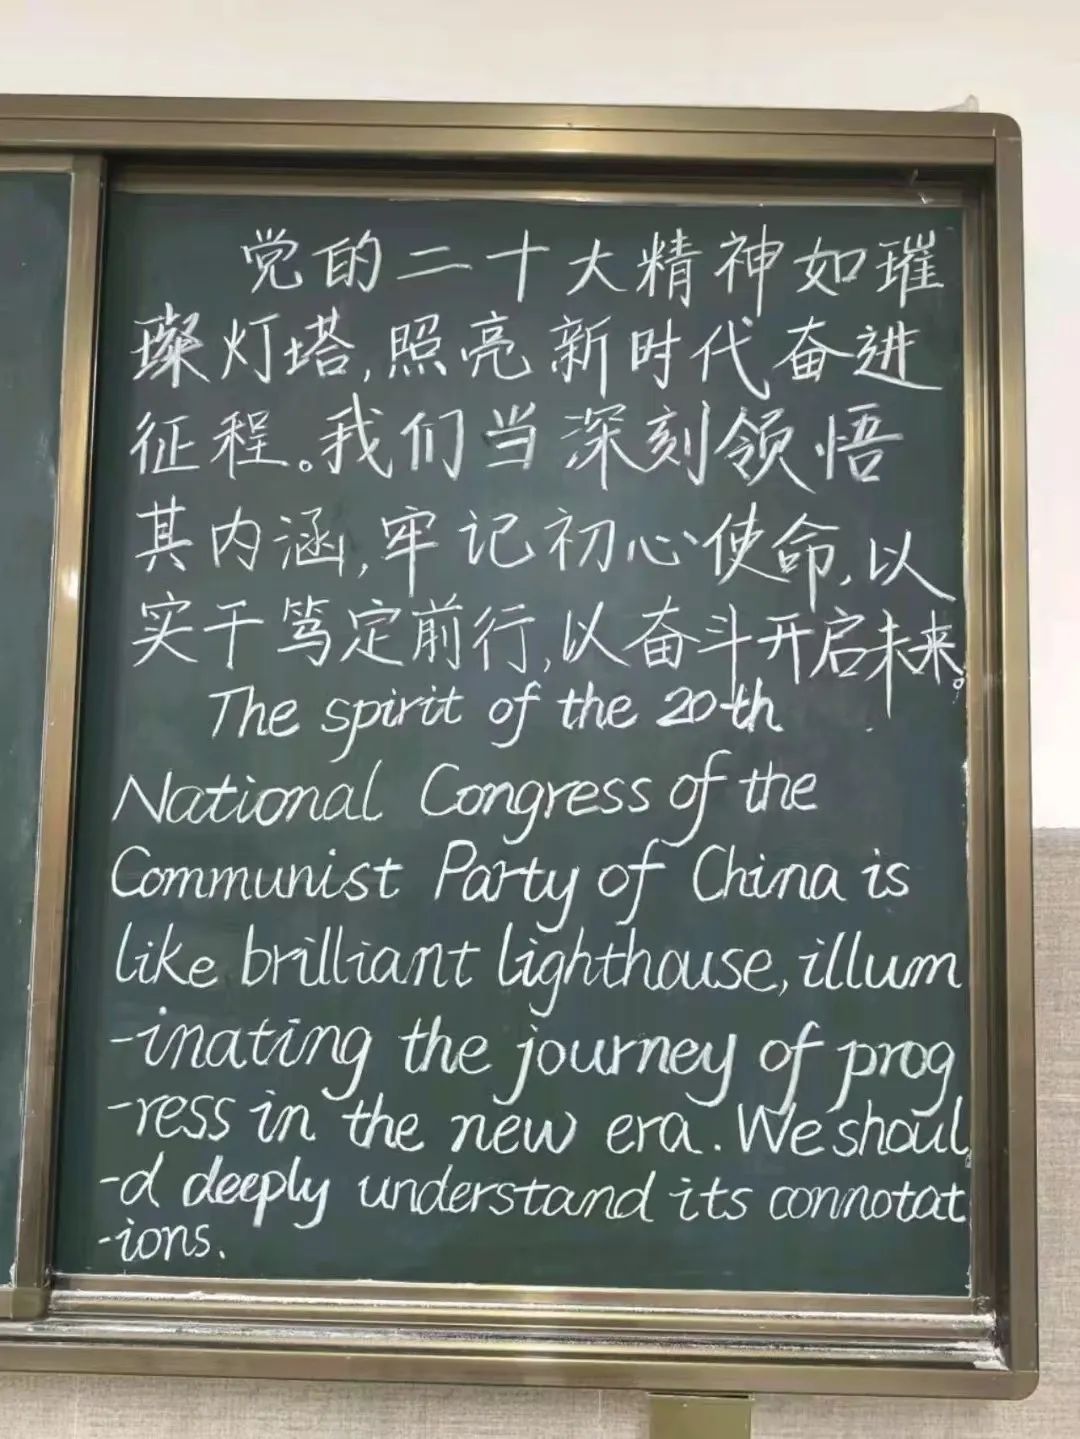 党的二十大精神如璀
璨灯塔,照亮新时代奋进
征程。我们当深刻领悟
其内涵,牢记初心使命,以
实干笃定前行,以奋斗开启未来。
The spirit of the 20-th
National Congress of the
Communist Party of China is
like brilliant lighthouse, illum
-inating the journey of prog
-ress in the new era. We shoul
-d deeply understand its connotat
-ions.